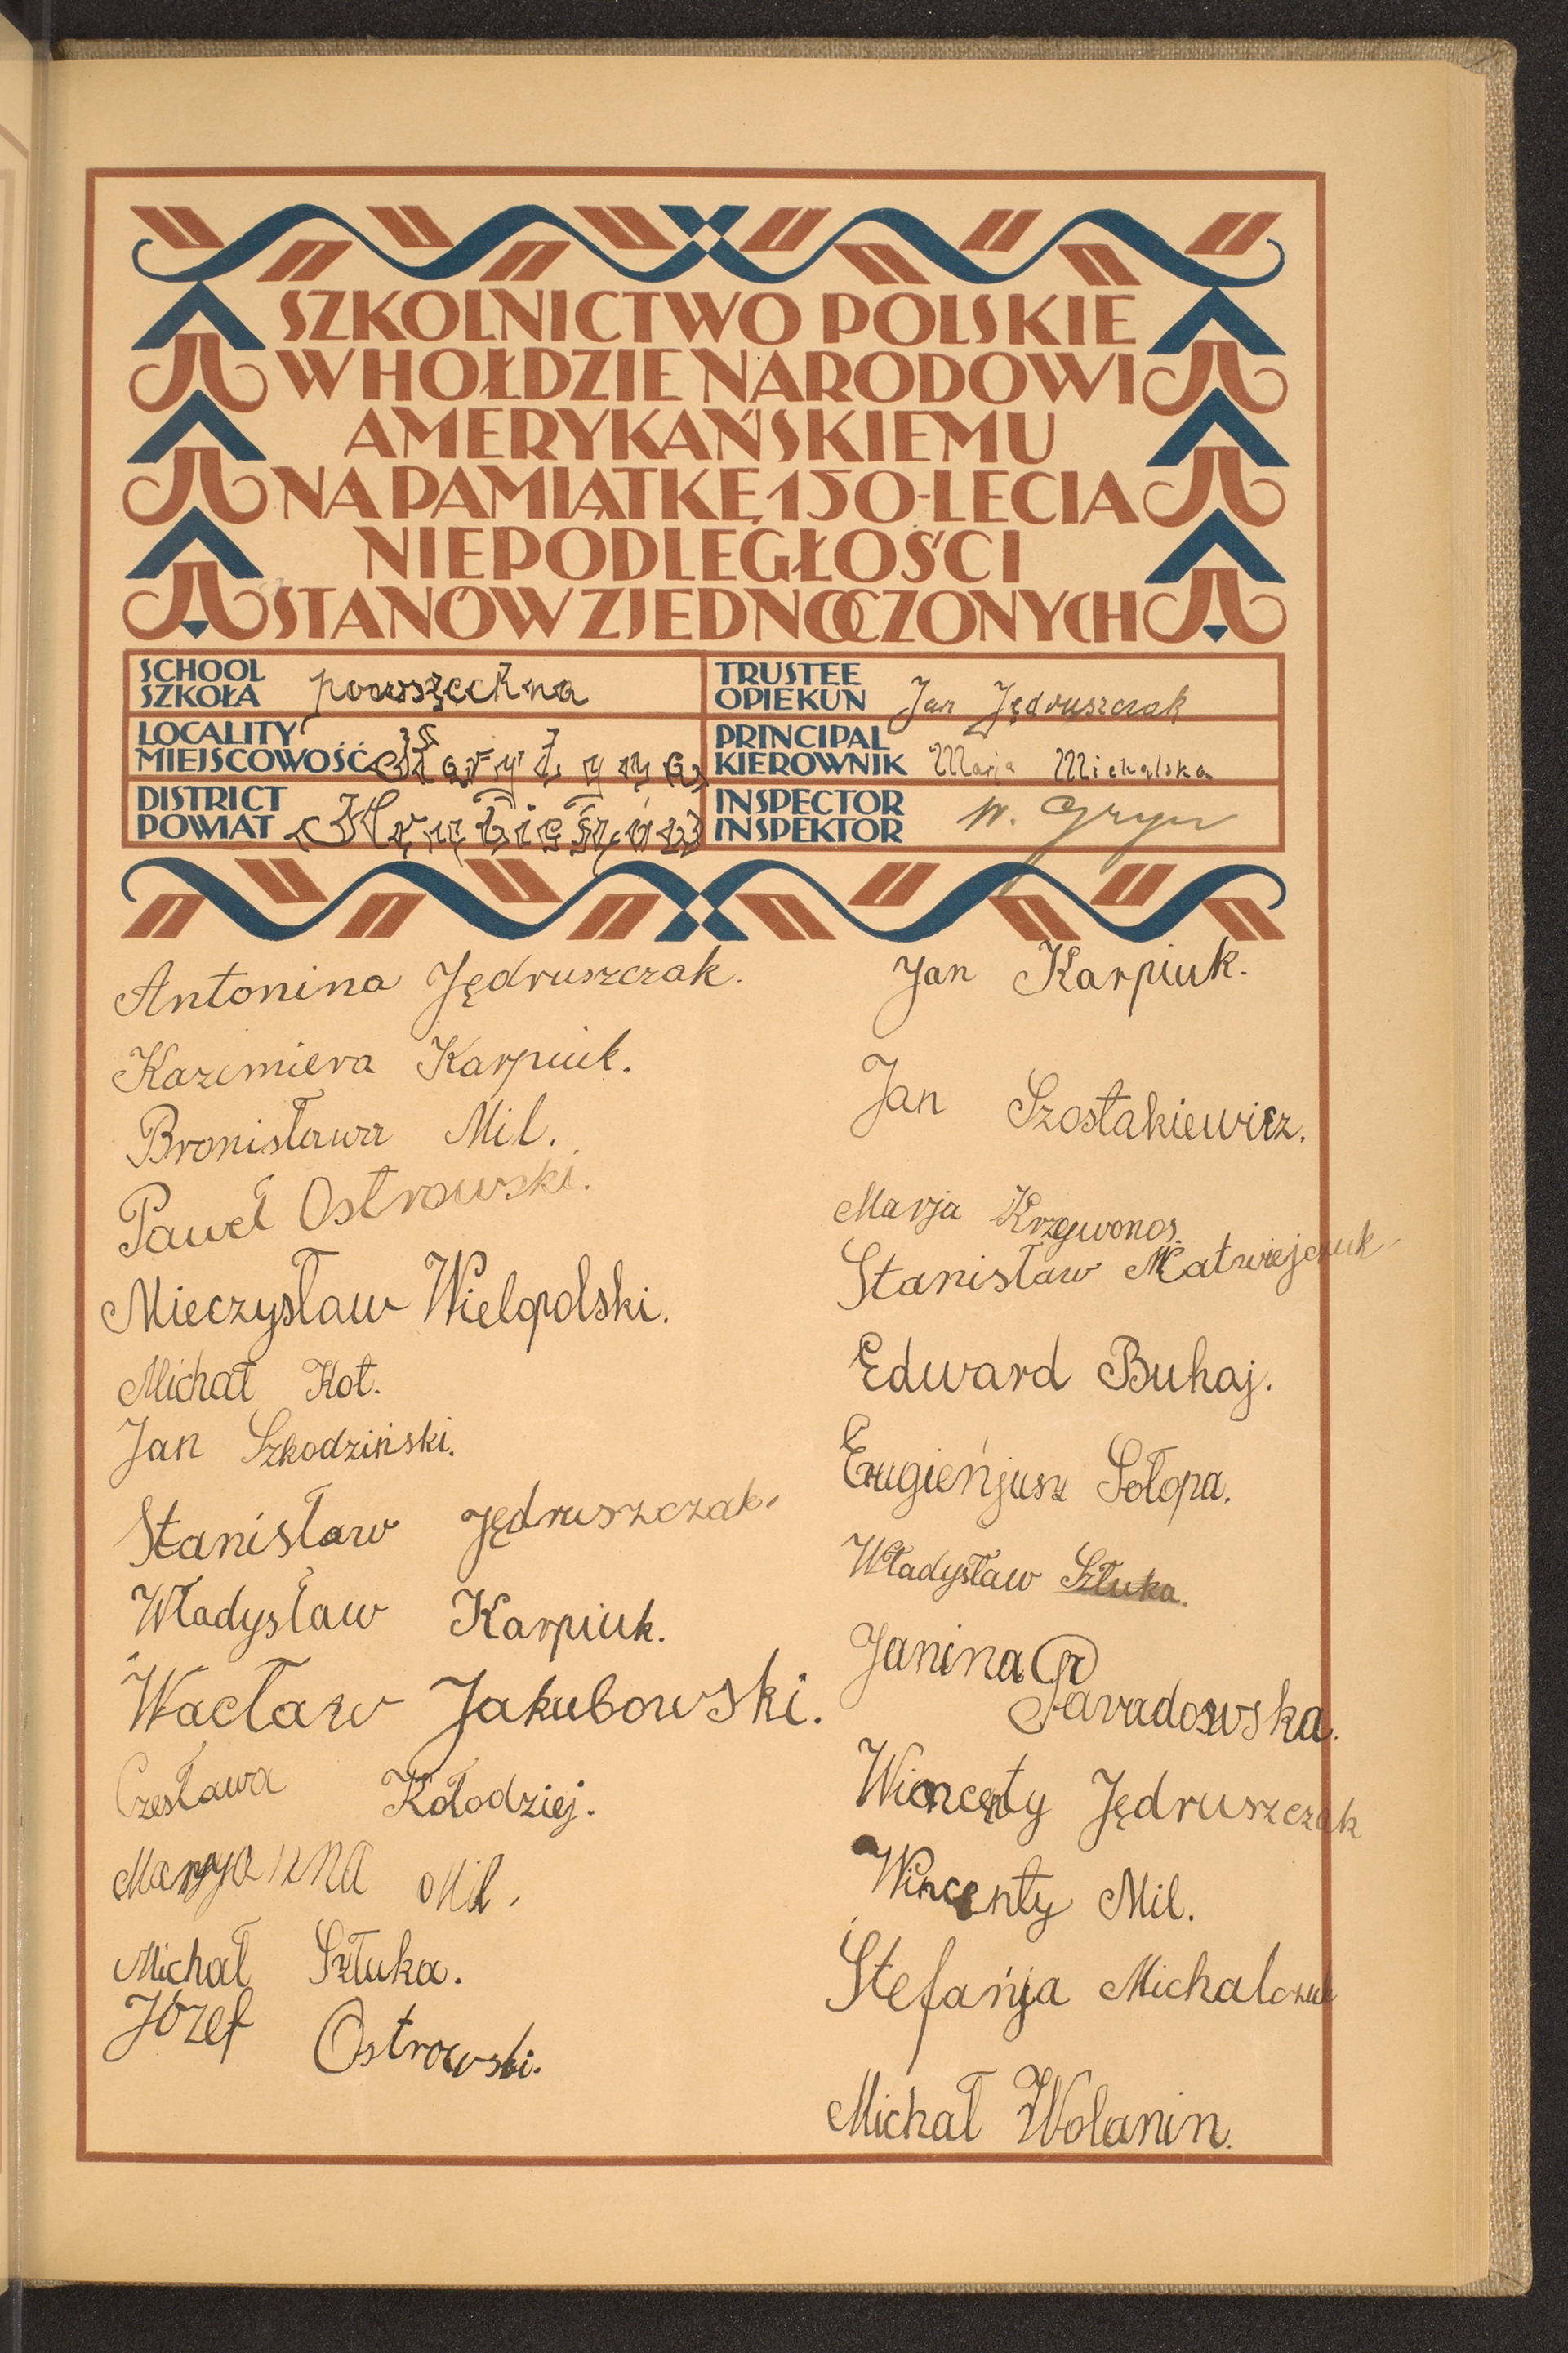 SZKOLNICTWO POLSKIE
W HOŁDZIE NARODOWI
AMERYKAŃSKIEMU
NA PAMIĄTKĘ 150-LECIA
NIEPODLEGŁOŚCI
STANÓW ZJEDNOCZONYCH
SCHOOL
SZKOŁA powszechna
LOCALITY
MIEJSCOWOŚĆ
DISTRICT
POWIAT Hrubieszów
TRUSTEE
OPIEKUN Jan Jędruszczak
PRINCIPAL
KIEROWNIK Marja Michalska
INSPECTOR
INSPEKTOR W. Gryn
Antonina Jędruszczak.
Kazimiera Karpiuk.
Bronisława Mil.
Paweł Ostrowski.
Mieczysław Wielopolski.
Michał Kot.
Jan Szkodziński.
Stanisław Jędruszczak.
Władysław Karpiuk.
Wacław Jakubowski.
Czesława Kołodziej.
Maryanna Mil.
Michał Sztuka.
Józef Ostrowski.
Jan Karpiuk.
Jan Szostakiewicz.
Marja Krzywonos.
Stanisław Matwiejczuk
Edward Buhaj.
Eugieńjusz Sołopa.
Władysław Sztuka.
Janina
Paradowska.
Wincenty Jędruszczak
Wincenty Mil.
Stefańja Michalczuk
Michał Wolanin.